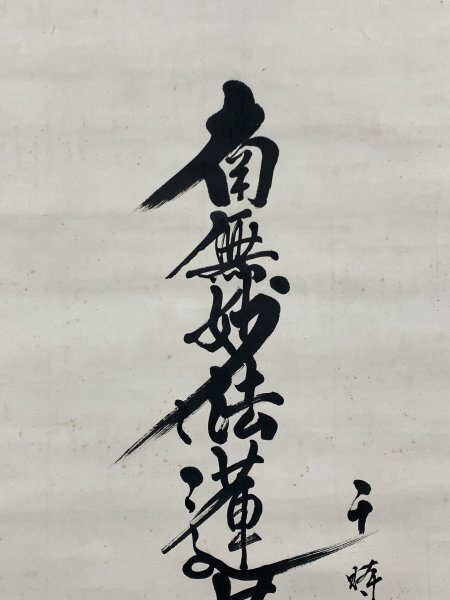 南無妙法蓮
于時